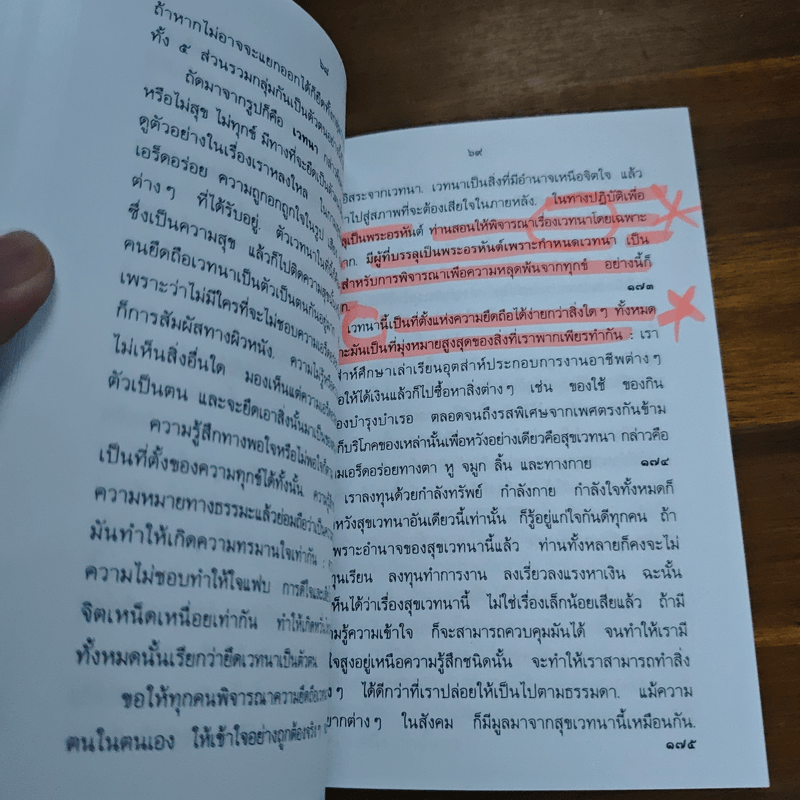 ๖๘
ถ้าหากไม่อาจจะแยกออกได้ก็ยึดทั้ง
ทั้ง ๕ ส่วนรวมกลุ่มกันเป็นตัวตนอย่าง
ถัดมาจากรูปก็คือ เวทนา
หรือไม่สุข ไม่ทุกข์ มีทางที่จะยึดเป็นตัว
ดูตัวอย่างในเรื่องเราหลงใหล ใน
เอร็ดอร่อย ความถูกอกถูกใจในรูป
ต่างๆ ที่ได้รับอยู่. ตัวเวทนาในที่นี้
ซึ่งเป็นความสุข แล้วก็ไปติดความสุข
คนยึดถือเวทนาเป็นตัวเป็นตนกันอยู่
เพราะว่าไม่มีใครที่จะไม่ชอบความเอร็ด
ก็การสัมผัสทางผิวหนัง. ความ
ไม่เห็นสิ่งอื่นใด มองเห็นแต่ความเอร็ด
ตัวเป็นตน และจะยึดเอาสิ่งนั้นมาเป็น
ความรู้สึกทางพอใจหรือไม่พอใจก็
เป็นที่ตั้งของความทุกข์ได้ทั้งนั้น
ความหมายทางธรรมะแล้วย่อมถือว่าเป็น
มันทำให้เกิดความทรมานใจเท่ากัน :
ความไม่ชอบทำให้ใจแฟบ การดีใจและ
จิตเหน็ดเหนื่อยเท่ากัน ทำให้เกิด
ทั้งหมดนั้นเรียกว่ายึดเวทนาเป็นตัวตน
ขอให้ทุกคนพิจารณาความยึดถือ
ตนในตนเอง ให้เข้าใจอย่างถูกต้องจริงๆ
๖๙
อิสระจากเวทนา. เวทนาเป็นสิ่งที่มีอำนาจเหนือจิตใจ แล้ว
าไปสู่สภาพที่จะต้องเสียใจในภายหลัง. ในทางปฏิบัติเพื่อ
ลุเป็นพระอรหันต์ ท่านสอนให้พิจารณาเรื่องเวทนาโดยเฉพาะ
าก. มีผู้ที่บรรลุเป็นพระอรหันต์เพราะกำหนดเวทนา เป็น
สำหรับการพิจารณาเพื่อความหลุดพ้นจากทุกข์ อย่างนี้ก็
ก. ๑๗๓
เวทนานี้เป็นที่ตั้งแห่งความยึดถือได้ง่ายกว่าสิ่งใดๆ ทั้งหมด
าะมันเป็นที่มุ่งหมายสูงสุดของสิ่งที่เราพากเพียรทำกัน : เรา
ส่าห์ศึกษาเล่าเรียนอุตส่าห์ประกอบการงานอาชีพต่างๆ
อให้ได้เงินแล้วก็ไปซื้อหาสิ่งต่างๆ เช่น ของใช้ ของกิน
องบำรุงบำเรอ ตลอดจนถึงรสพิเศษจากเพศตรงกันข้าม
ก็บริโภคของเหล่านั้นเพื่อหวังอย่างเดียวคือสุขเวทนา กล่าวคือ
ามเอร็ดอร่อยทางตา หู จมูก ลิ้น และทางกาย ๑๗๔
เราลงทุนด้วยกำลังทรัพย์ กำลังกาย กำลังใจทั้งหมดก็
หวังสุขเวทนาอันเดียวนี้เท่านั้น ก็รู้อยู่แก่ใจกันดีทุกคน ถ้า
เพราะอำนาจของสุขเวทนานี้แล้ว ท่านทั้งหลายก็คงจะไม่
ทุนเรียน ลงทุนทำการงาน ลงเรี่ยวลงแรงหาเงิน ฉะนั้น
ห็นได้ว่าเรื่องสุขเวทนานี้ ไม่ใช่เรื่องเล็กน้อยเสียแล้ว ถ้ามี
ามรู้ความเข้าใจ ก็จะสามารถควบคุมมันได้ จนทำให้เรามี
ใจสูงอยู่เหนือความรู้สึกชนิดนั้น จะทำให้เราสามารถทำสิ่ง
งๆ ได้ดีกว่าที่เราปล่อยให้เป็นไปตามธรรมดา. แม้ความ
ยากต่างๆ ในสังคม ก็มีมูลมาจากสุขเวทนานี้เหมือนกัน.
๑๗๕